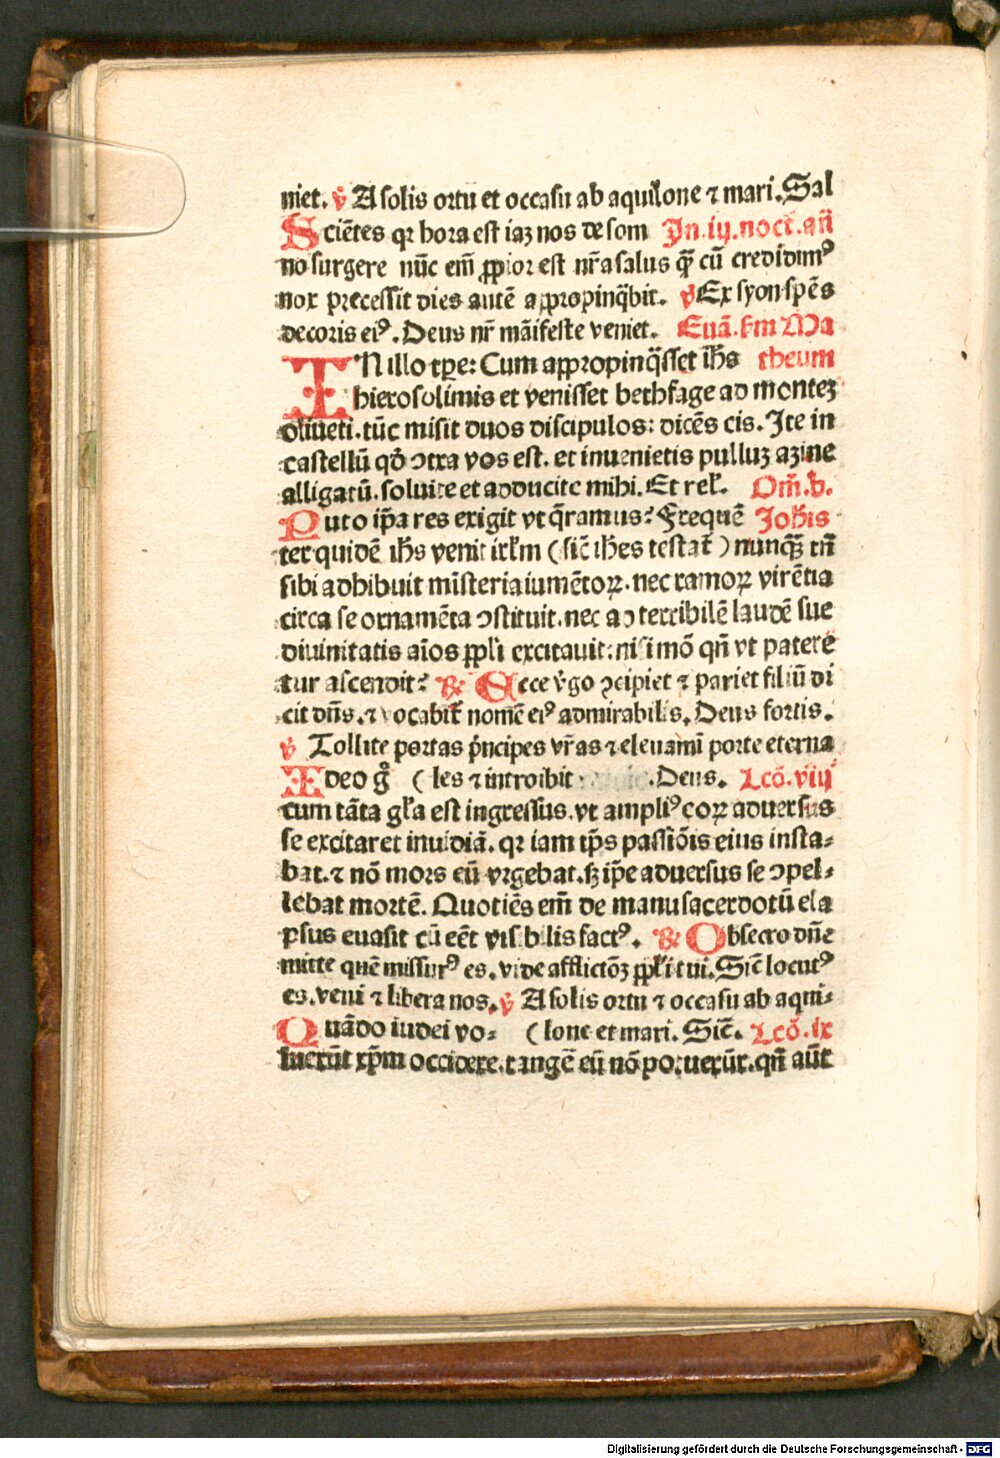 niet. ℣ A solis ortu et occasu ab aquilone ⁊ mari. Sal
Sciētes qꝛ hora est iaꝫ nos de som In .iij. noct̄. an̄
no surgere nūc em̄ ꝓpior est nr̄a salus q̄ꝫ cū credidimꝰ
nox precessit dies autē appropinq̄bit. ℣ Ex syon spēs
decoris eiꝰ. Deus nr̄ māifeste veniet. Euā. ẜm Ma
IN illo tꝑe: Cum appropinq̄sset ih̄s theum
hierosolimis et venisset bethfage ad monteꝫ
oliueti. tūc misit duos discipulos: dicēs eis. Ite in
castellū qd̄ ↄtra vos est. et inuenietis pulluꝫ azine
alligatū. soluite et adducite mihi. Et rel̄. Om̄. b.
Puto ip̄a res exigit vt q̄ramus? Frequē Joh̄is
ter quidē ih̄s venit irl̄m (sic̄ ih̄es testat̄) nunqꝫ̄ tn̄
sibi adhibuit misteria iumētoꝝ. nec ramoꝝ virētia
circa se ornamēta ↄstituit. nec ad terribilē laudē sue
diuinitatis aīos ppl̄i excitauit: nisi mō qn̄ vt paterē
tur ascendit? ℟ Ecce v̄go ↄcipiet ⁊ pariet filiū di
cit dn̄s. ⁊ vocabit̄ nomē eiꝰ admirabilis. Deus fortis.
℣ Tollite portas p̄ncipes vr̄as ⁊ eleuami porte eterna
Ideo g̊ (les ⁊ introibit . Deus. Lcō. viij
cum tāta gl̄a est ingressus. vt ampliꝰ eoꝝ aduersus
se excitaret inuidiā. qꝛ iam tp̄s passiōis eius insta-
bat. ⁊ nō mors eū vrgebat. sꝫ ip̄e aduersus se ↄpel-
lebat mortē. Quotiēs em̄ de manu sacerdotū ela
psus euasit cū eēt visibilis factꝰ. ℟ Obsecro dn̄e
mitte quē missurꝰ es. vide afflictōꝫ ppl̄i tui. Sic̄ locutꝰ
es. veni ⁊ libera nos. ℣ A solis ortu ⁊ occasu ab aqui-
Quādo iudei vo- (lone et mari. Sic̄. Lcō. ix
luerūt xp̄m occidere. tangē eū nō potuerūt. qn̄ aūt
Digitalisierung gefördert durch die Deutsche Forschungsgemeinschaft - DFG